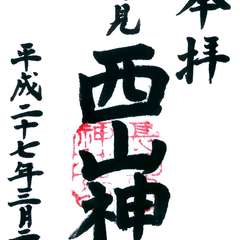 本拝
見
西山神
平成二十七年三月二